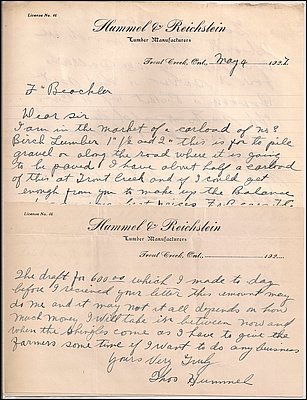 License No. 46
Hummel & Reichstein
Lumber Manufacturers
Trout Creek, Ont., May 4 1927
F Beochler
Dear sir
I am in the market of a carload of no 3
Birch Lumber 1" 1½ and 2" this is for to pile
gravel or along the road where it is going
to be paved I have about half a carload
of this at Trout Creek and if I could get
enough from you to make up the Balance
License No. 46
Hummel & Reichstein
Lumber Manufacturers
Trout Creek, Ont., 192
The draft for 600.00 which I made to day
before I received your letter this amount may
do me and it may not it all depends on how
much money I will take in between now and
when the shingles come as I have to give the
farmers some time if I want to do any buisness
Yours Very Truly
Thos Hummel